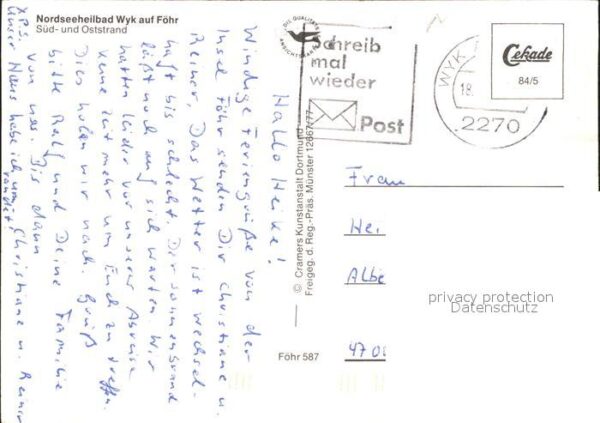 Nordseeheilbad Wyk auf Föhr
Süd- und Oststrand
Hallo Heike!
Windige Feriengrüße von der
Insel Föhr senden Dir Christiane u.
Reiner. Das Wetter ist wechsel-
haft bis schlecht. Der Sonnenbrand
läßt noch auf sich warten. Wir
hatten leider vor unserer Abreise
keine Zeit mehr um Euch zu treffen.
Dies holen wir nach. Grüß
bitte Ralf und Deine Familie
von uns. Bis dann
Christiane u. Reiner
XP.S.
Unser Haus habe ich
© Cramers Kunstanstalt Dortmund
Freigeg. d. Reg.-Präs. Münster 12667/77
Föhr 587
DIE QUALITÄTS
ANSICHTSKARTE
Schreib
mal
wieder
Post
WYK
18.
2270
Cekade
84/5
Frau
Hei
Albe
privacy protection
Datenschutz
470